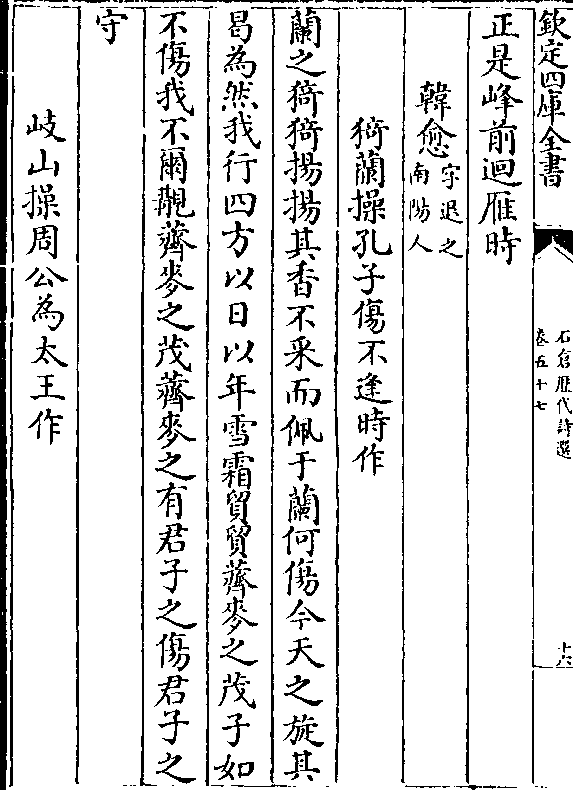 欽定四庫全書
石倉歷代詩選
卷五十七
十六
正是峰前迴雁時
韓愈字退之
南陽人
猗蘭操孔子傷不逢時作
蘭之猗猗揚揚其香不采而佩于蘭何傷今天之旋其
曷為然我行四方以日以年雪霜貿貿薺麥之茂子如
不傷我不爾覯薺麥之茂薺麥之有君子之傷君子之
守
岐山操周公為太王作